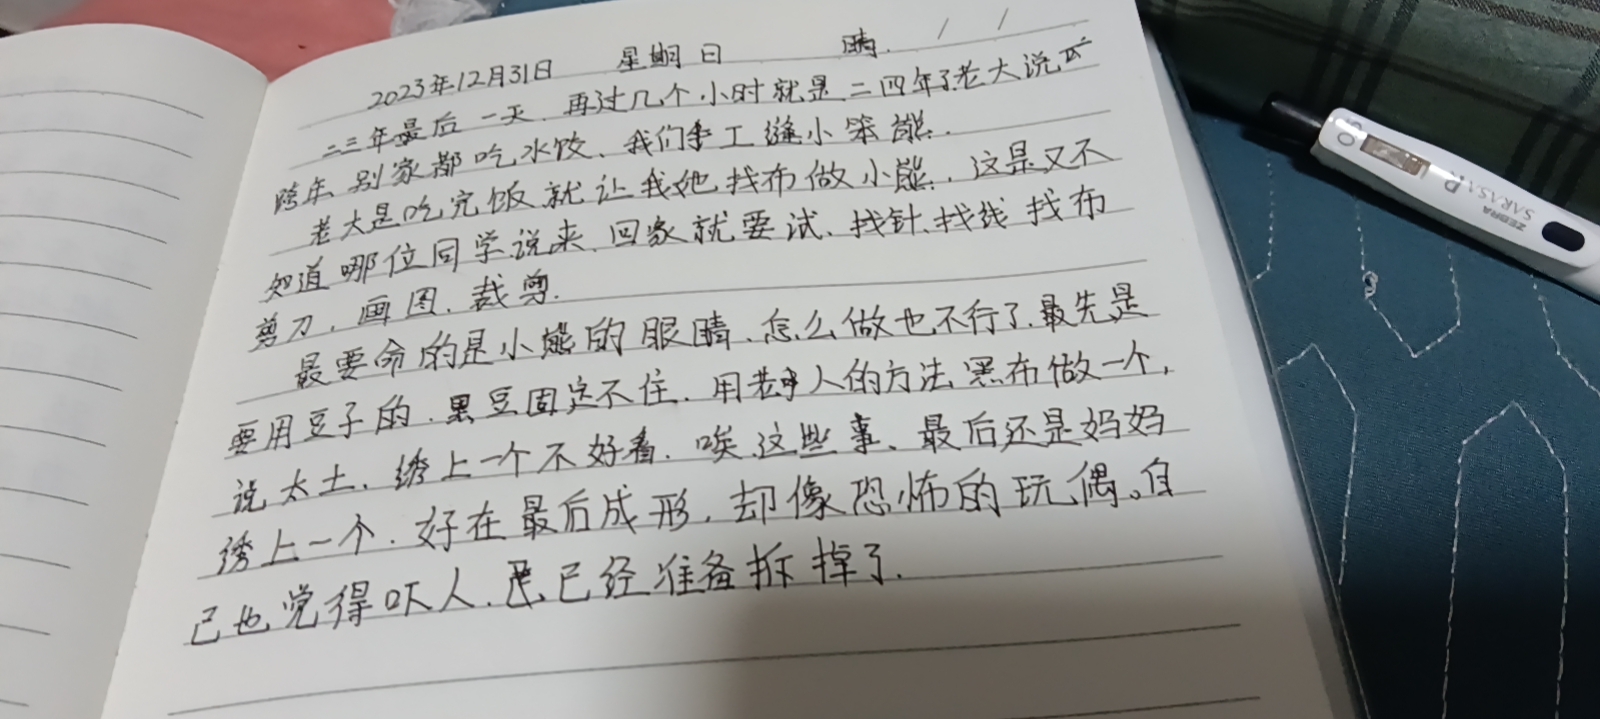 2023年12月31日 星期日 晴.
二三年最后一天. 再过几个小时就是二四年了.老大说
跨年 别家都吃水饺、我们手工缝小笨熊.
老大是吃完饭就让我她找布做小熊. 这是又不
知道哪位同学说来.回家就要试、找针.找线 找布
剪刀. 画图. 裁剪.
最要命的是小熊的眼睛.怎么做也不行了.最先是
要用豆子的. 黑豆固定不住. 用老人的方法.黑布做一个,
说太土. 绣上一个不好看. 唉.这些事、最后还是妈妈
绣上一个. 好在最后成形, 却像恐怖的玩偶。自
己也觉得吓人. 已经准备拆掉了.
ZEBRA
SARASA R